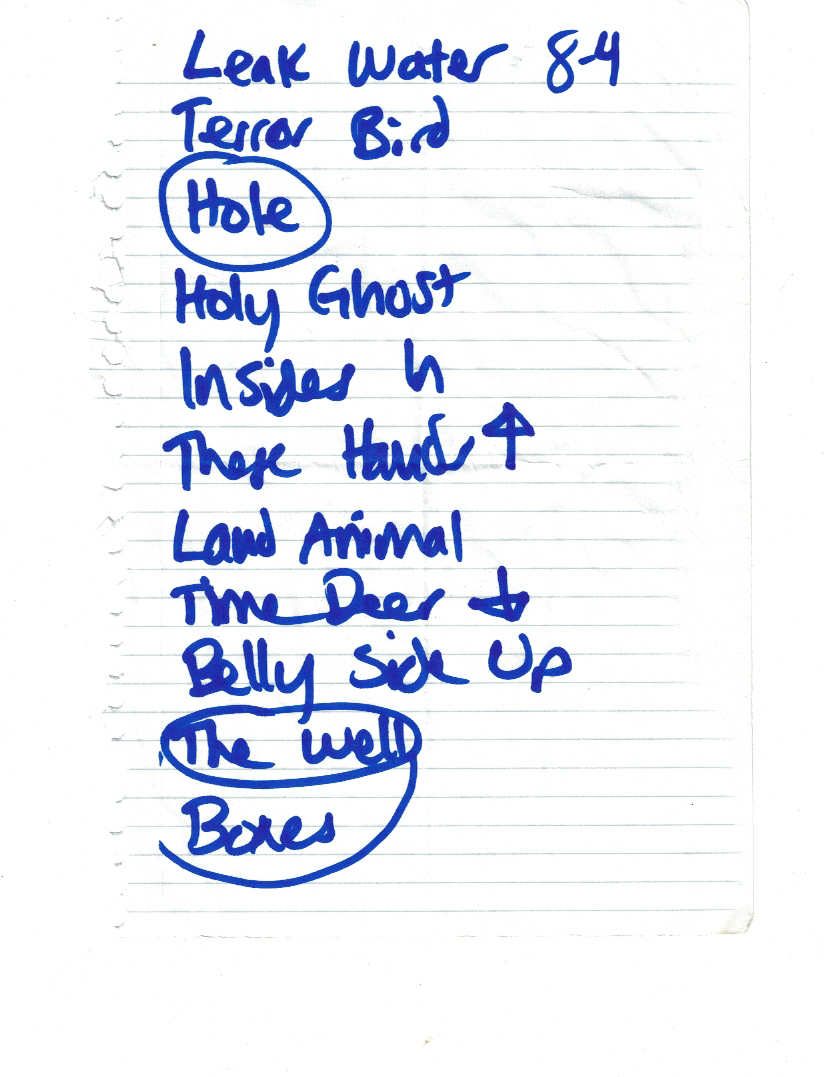 Leak Water 8-4
Terror Bird
Hole
Holy Ghost
Insides h
These Hands ↑
Land Animal
Time Deer ↓
Belly Side Up
The Well
Boxes